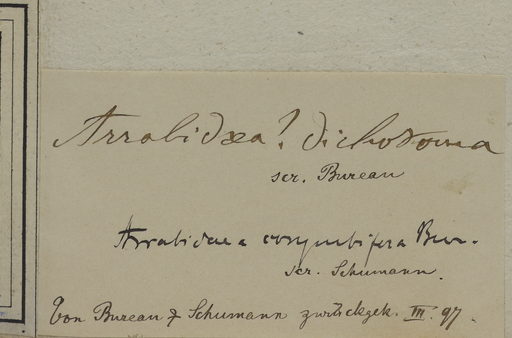 Arrabidæa? dichotoma
scr. Bureau
Arrabidaea corymbifera Bur.
scr. Schumann.
Von Bureau & Schumann zurückgek. III. 97.